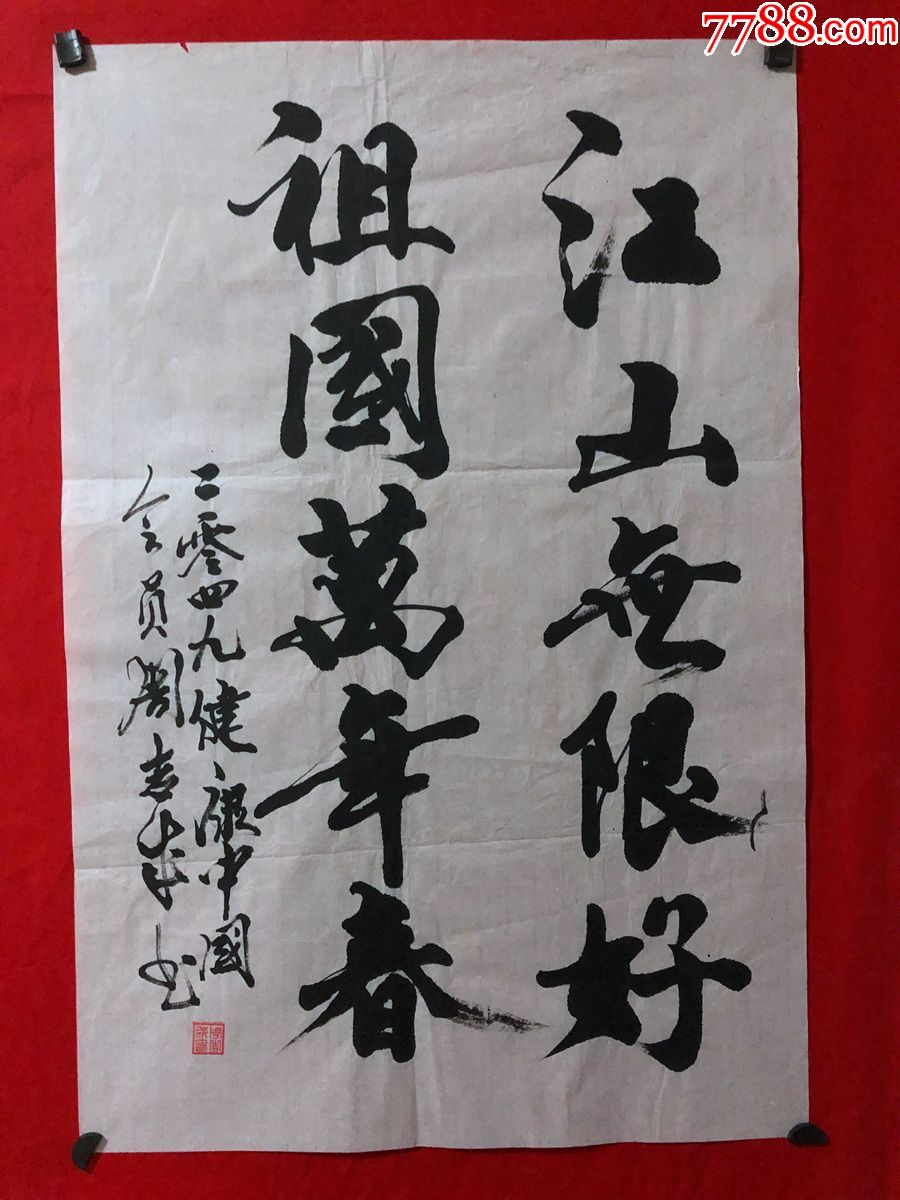 7788.com
江山無限好
祖國萬年春
二零四九健康中國
会员周志成书